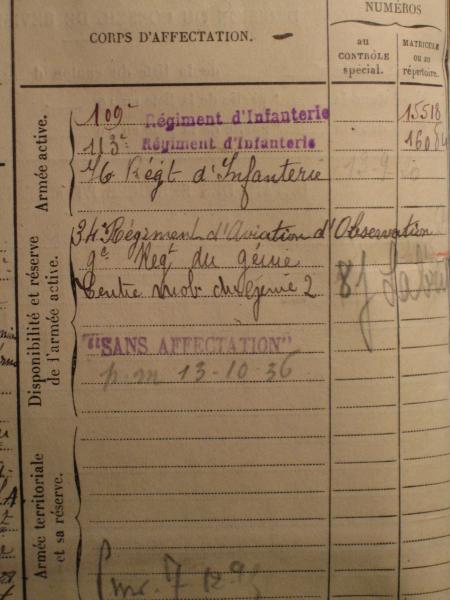 NUMÉROS
CORPS D'AFFECTATION.
au
CONTRÔLE
spécial.
MATRICULE
ou au
répertoire.
Armée active.
109e Régiment d'Infanterie
15518
113e Régiment d'Infanterie
46 Régt d'Infanterie
Disponibilité et réserve
de l'armée active.
34e Régiment d'Aviation d'Observation
9e Regt du génie
Centre mob du Génie 2
"SANS AFFECTATION"
13-10-36
Armée territoriale
et sa réserve.